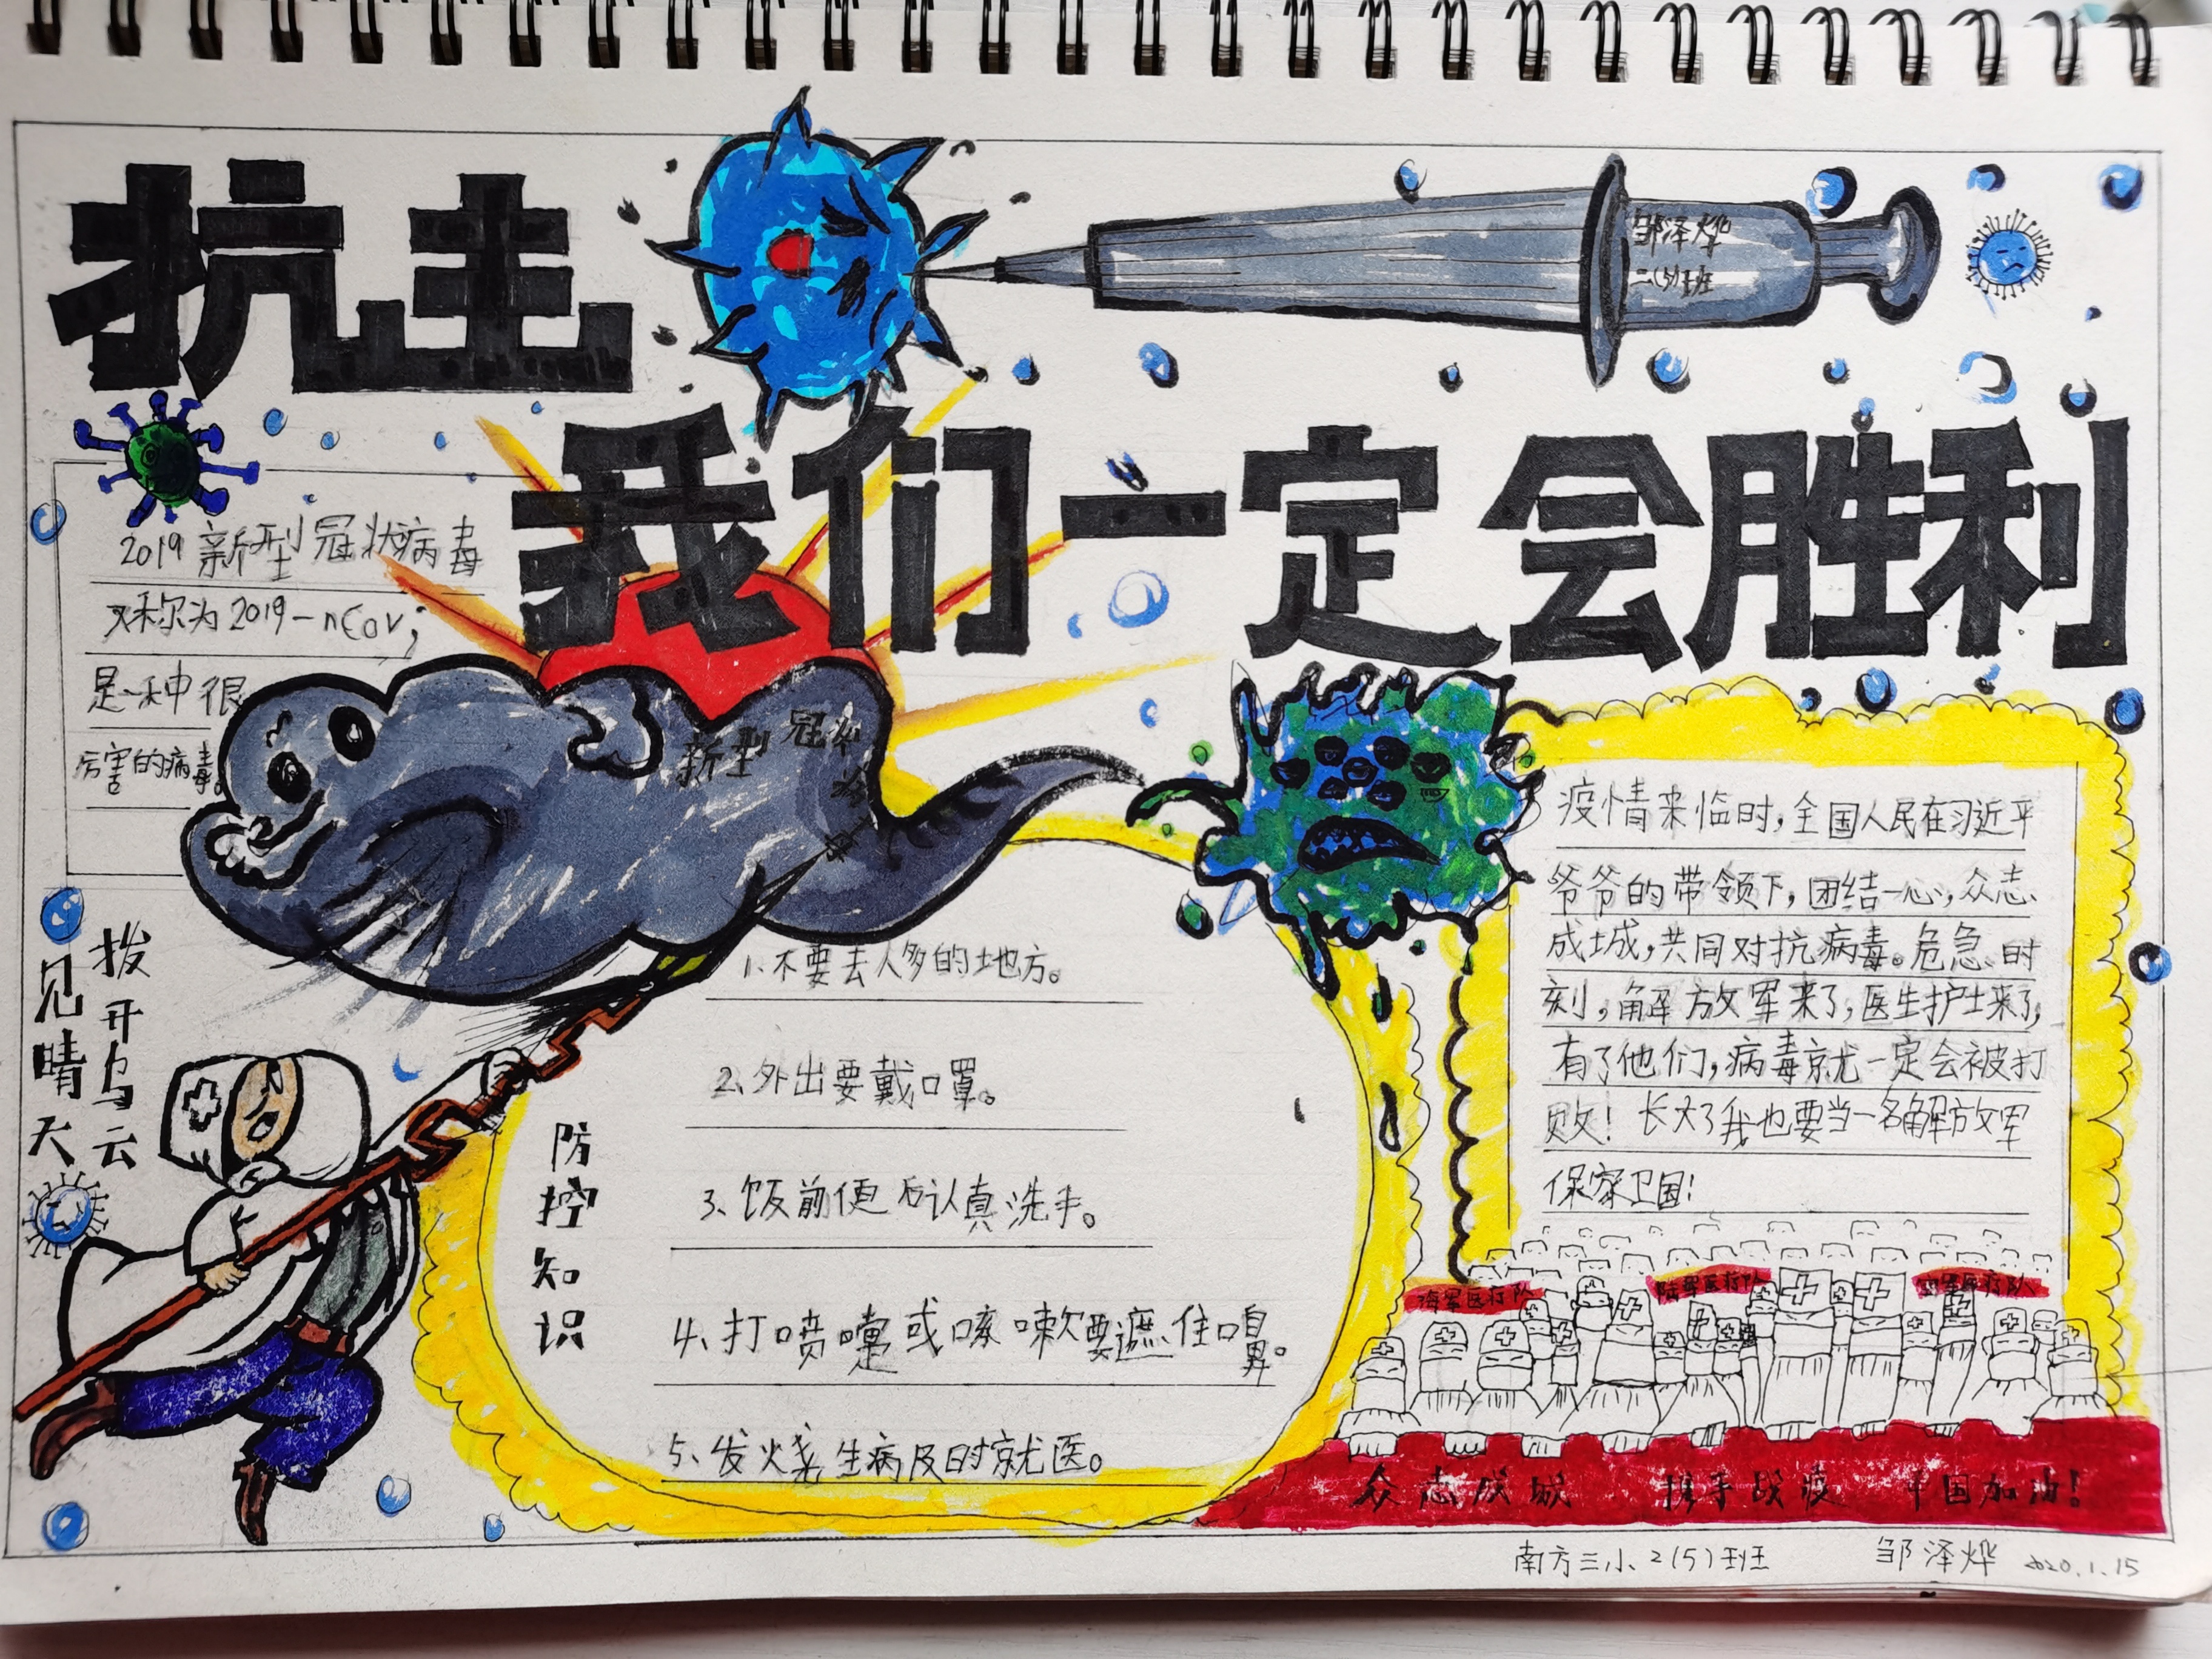 抗击
邹泽烨
二(5)班
我们一定会胜利
2019新型冠状病毒
又称为2019-nCoV;
是一种很
厉害的病毒。
新型冠状
拨开乌云
见晴天
防控知识
1、不要去人多的地方。
2、外出要戴口罩。
3、饭前便后认真洗手。
4、打喷嚏或咳嗽要遮住口鼻。
5、发烧生病及时就医。
疫情来临时,全国人民在习近平
爷爷的带领下,团结一心,众志
成城,共同对抗病毒。危急时
刻,解放军来了,医生护士来了,
有了他们,病毒就一定会被打
败!长大了我也要当一名解放军
保家卫国!
海军医疗队
陆军医疗队
空军医疗队
众志成城 携手战疫 中国加油!
南方三小2(5)班 邹泽烨 2020.1.15